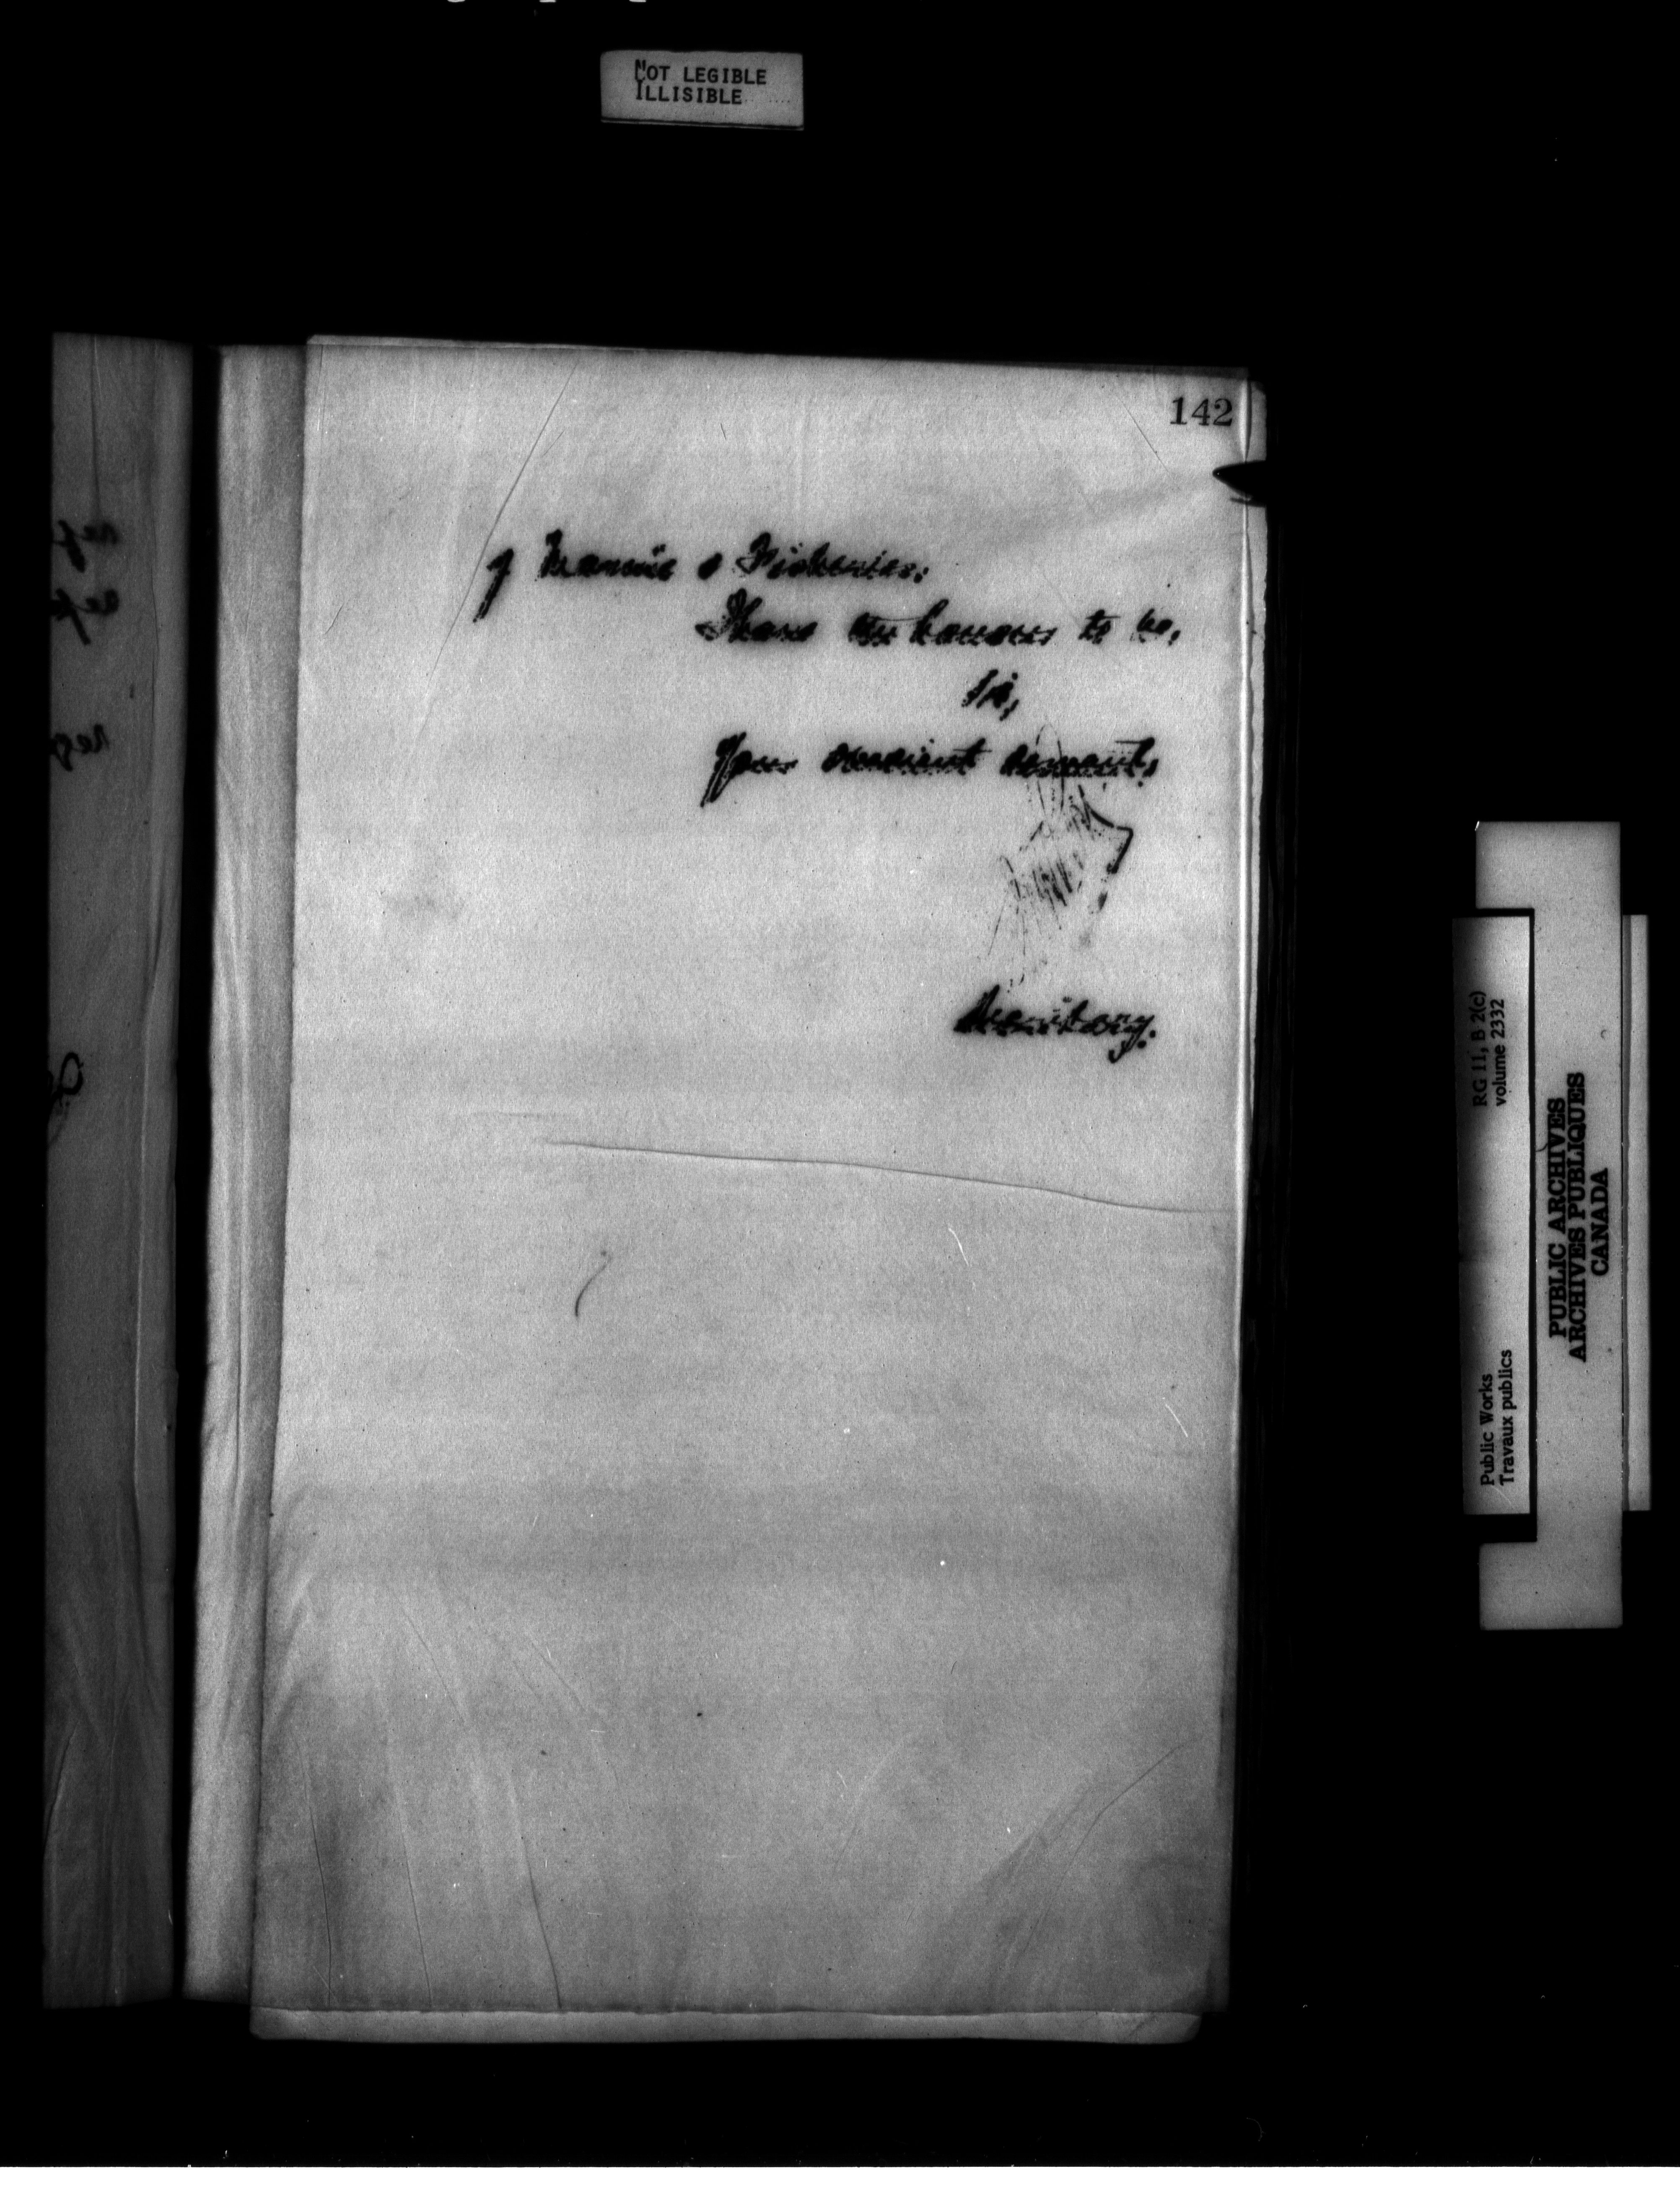 NOT LEGIBLE
ILLISIBLE
142
of Marine & Fisheries.
I have the honour to be,
Sir,
Your obedient servant,
Secretary.
RG 11, B 2(c)
volume 2332
Public Works
Travaux publics
PUBLIC ARCHIVES
ARCHIVES PUBLIQUES
CANADA